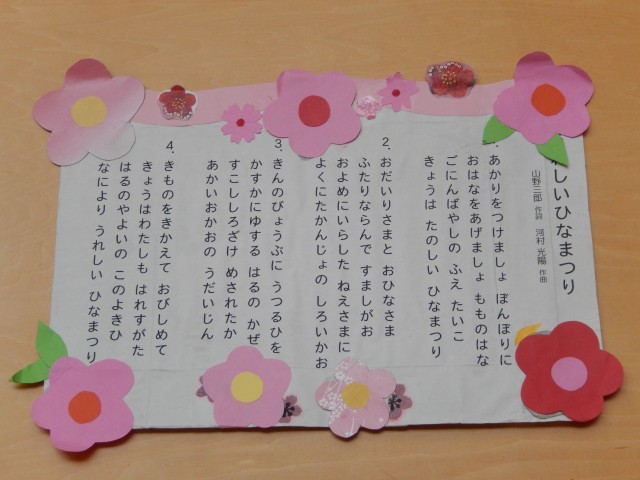 れしいひなまつり
山野三郎 作詞 河村光陽 作曲
あかりをつけましょ ぼんぼりに
おはなをあげましょ もものはな
ごにんばやしの ふえ たいこ
きょうは たのしい ひなまつり
2. おだいりさまと おひなさま
ふたりならんで すましがお
およめにいらした ねえさまに
よくにたかんじょの しろいかお
3. きんのびょうぶに うつるひを
かすかにゆする はるの かぜ
すこししろざけ めされたか
あかいおかおの うだいじん
4. きものをきかえて おびしめて
きょうはわたしも はれすがた
はるのやよいの このよきひ
なにより うれしい ひなまつり